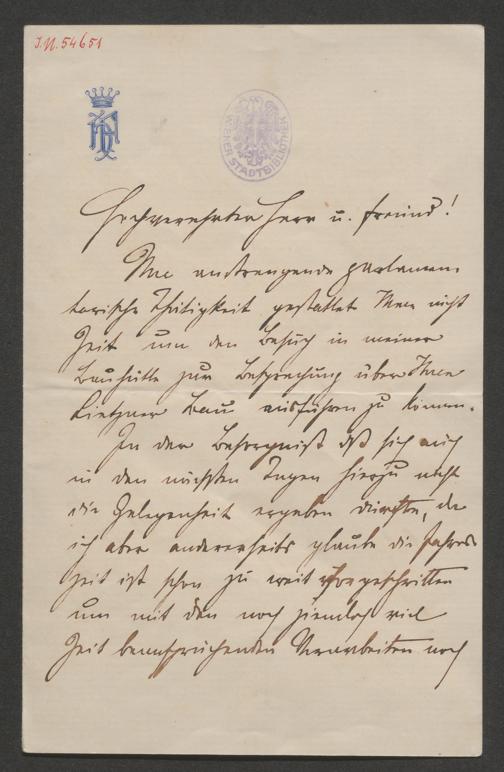 J.N. 54651
WIENER STADTBIBLIOTHEK
Hochverehrter Herr u. Freund!
Ihre anstrengende parlamen-
tarische Thätigkeit gestattet Ihnen nicht
Zeit um den Besuch in meiner
Bauhütte zur Besprechung über Ihren
Lietzner Bau ausführen zu können.
In der Besorgniß daß sich auch
in den nächsten Tagen hierzu nicht
die Gelegenheit ergeben dürfte, da
ich aber anderenseits glaube die Jahres-
zeit ist schon zu weit vorgeschritten
um mit den noch ziemlich viel
Zeit beanspruchenden Vorarbeiten noch